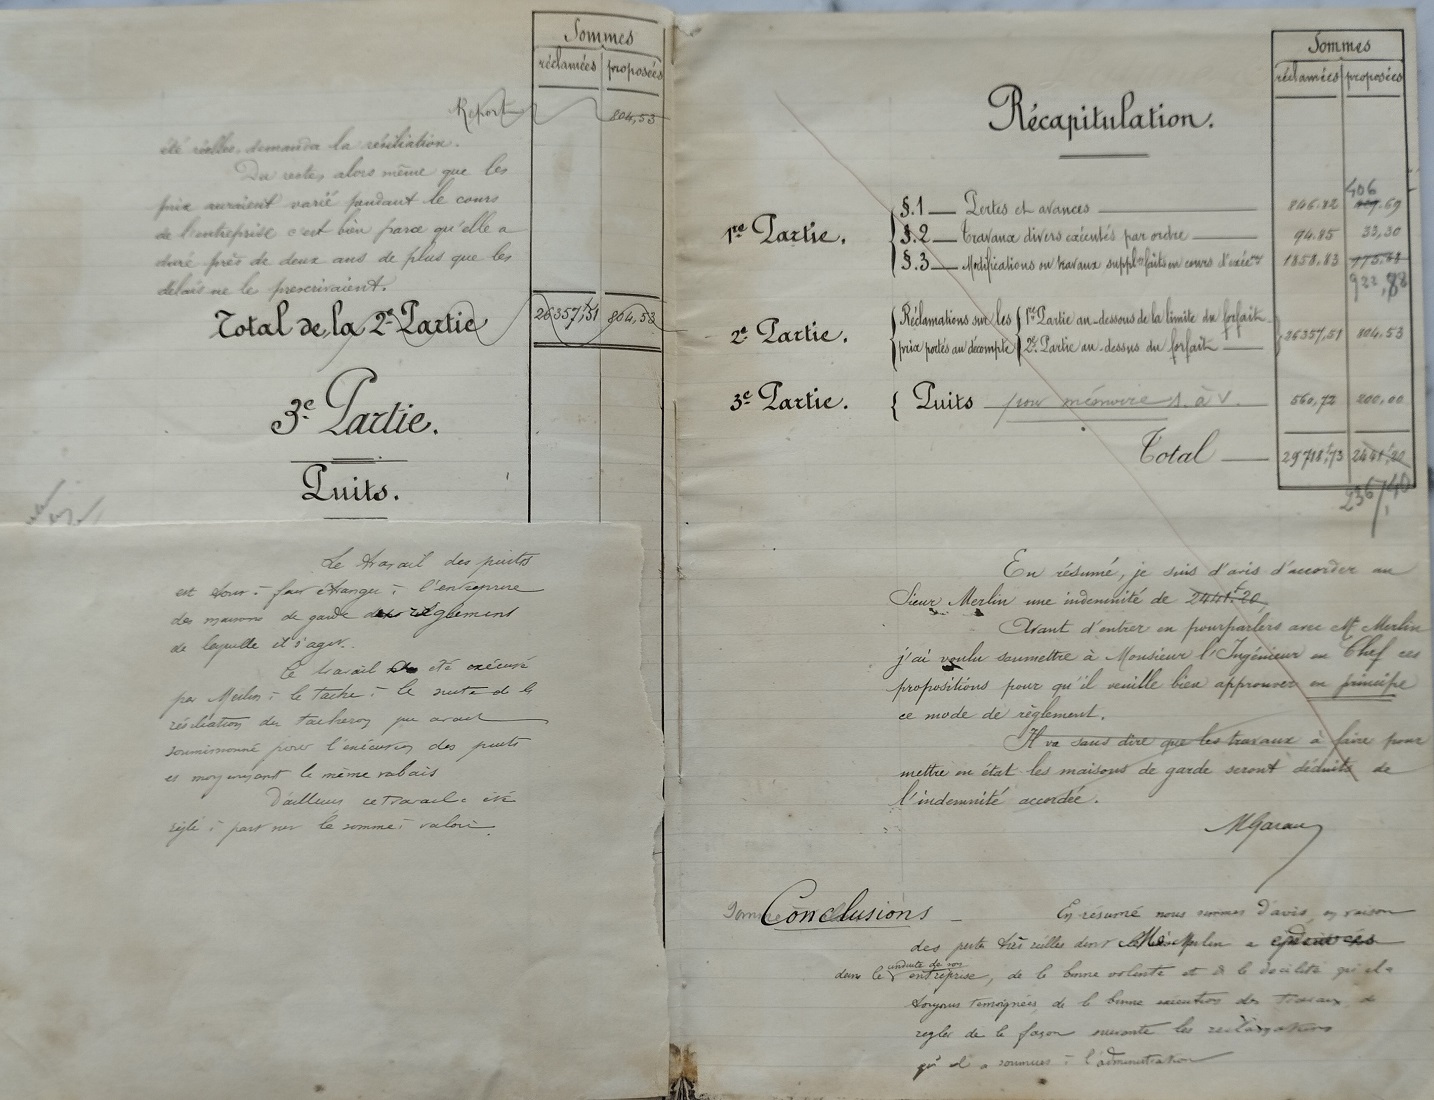 Sommes
réclamées proposées
Report 804,53
été réelles, demanda la résiliation.
Du reste, alors même que les
prix auraient varié pendant le cours
de l'entreprise c'est bien parce qu'elle a
duré près de deux ans de plus que les
délais ne le prescrivaient.
Total de la 2e Partie 26357,51 804,53
3e Partie.
Puits.
Le travail des puits
est tout à fait étranger à l'entreprise
des maisons de garde du règlement
de laquelle il s'agit.
Ce travail a été exécuté
par Merlin à la tâche à la suite de la
résiliation du tacheron qui avait
soumissionné pour l'exécution des puits
et moyennant le même rabais
D'ailleurs ce travail a été
réglé à part sur la somme à valoir.
Sommes
réclamées proposées
Récapitulation.
1re Partie.
§.1 — Pertes et avances 846.82 406 .69
§.2 — Travaux divers exécutés par ordre 94.85 33,30
§.3 — Modifications ou travaux supplres faits en cours d'exéon 1858.83 775,68
922,88
2e Partie.
Réclamations sur les prix portés au décompte
1re Partie au-dessous de la limite du forfait
2e Partie au-dessus du forfait
26357,51 804.53
3e Partie. Puits pour mémoire S. à V. 560,72 200,00
Total 29718,73 2441,20
2367,40
En résumé, je suis d'avis d'accorder au
Sieur Merlin une indemnité de 2441f20
Avant d'entrer en pourparlers avec Mr Merlin
j'ai voulu soumettre à Monsieur l'Ingénieur en Chef ces
propositions pour qu'il veuille bien approuver en principe
ce mode de règlement.
Il va sans dire que les travaux à faire pour
mettre en état les maisons de garde seront déduits de
l'indemnité accordée.
MGarau
Conclusions — En résumé nous sommes d'avis, en raison
des pertes très réelles dont Mr Merlin a
dans la conduite de son entreprise, de la bonne volonté et de la docilité qu'il a
toujours témoignées, de la bonne exécution des travaux, de
régler de la façon suivante les réclamations
qu'il a soumises à l'administration